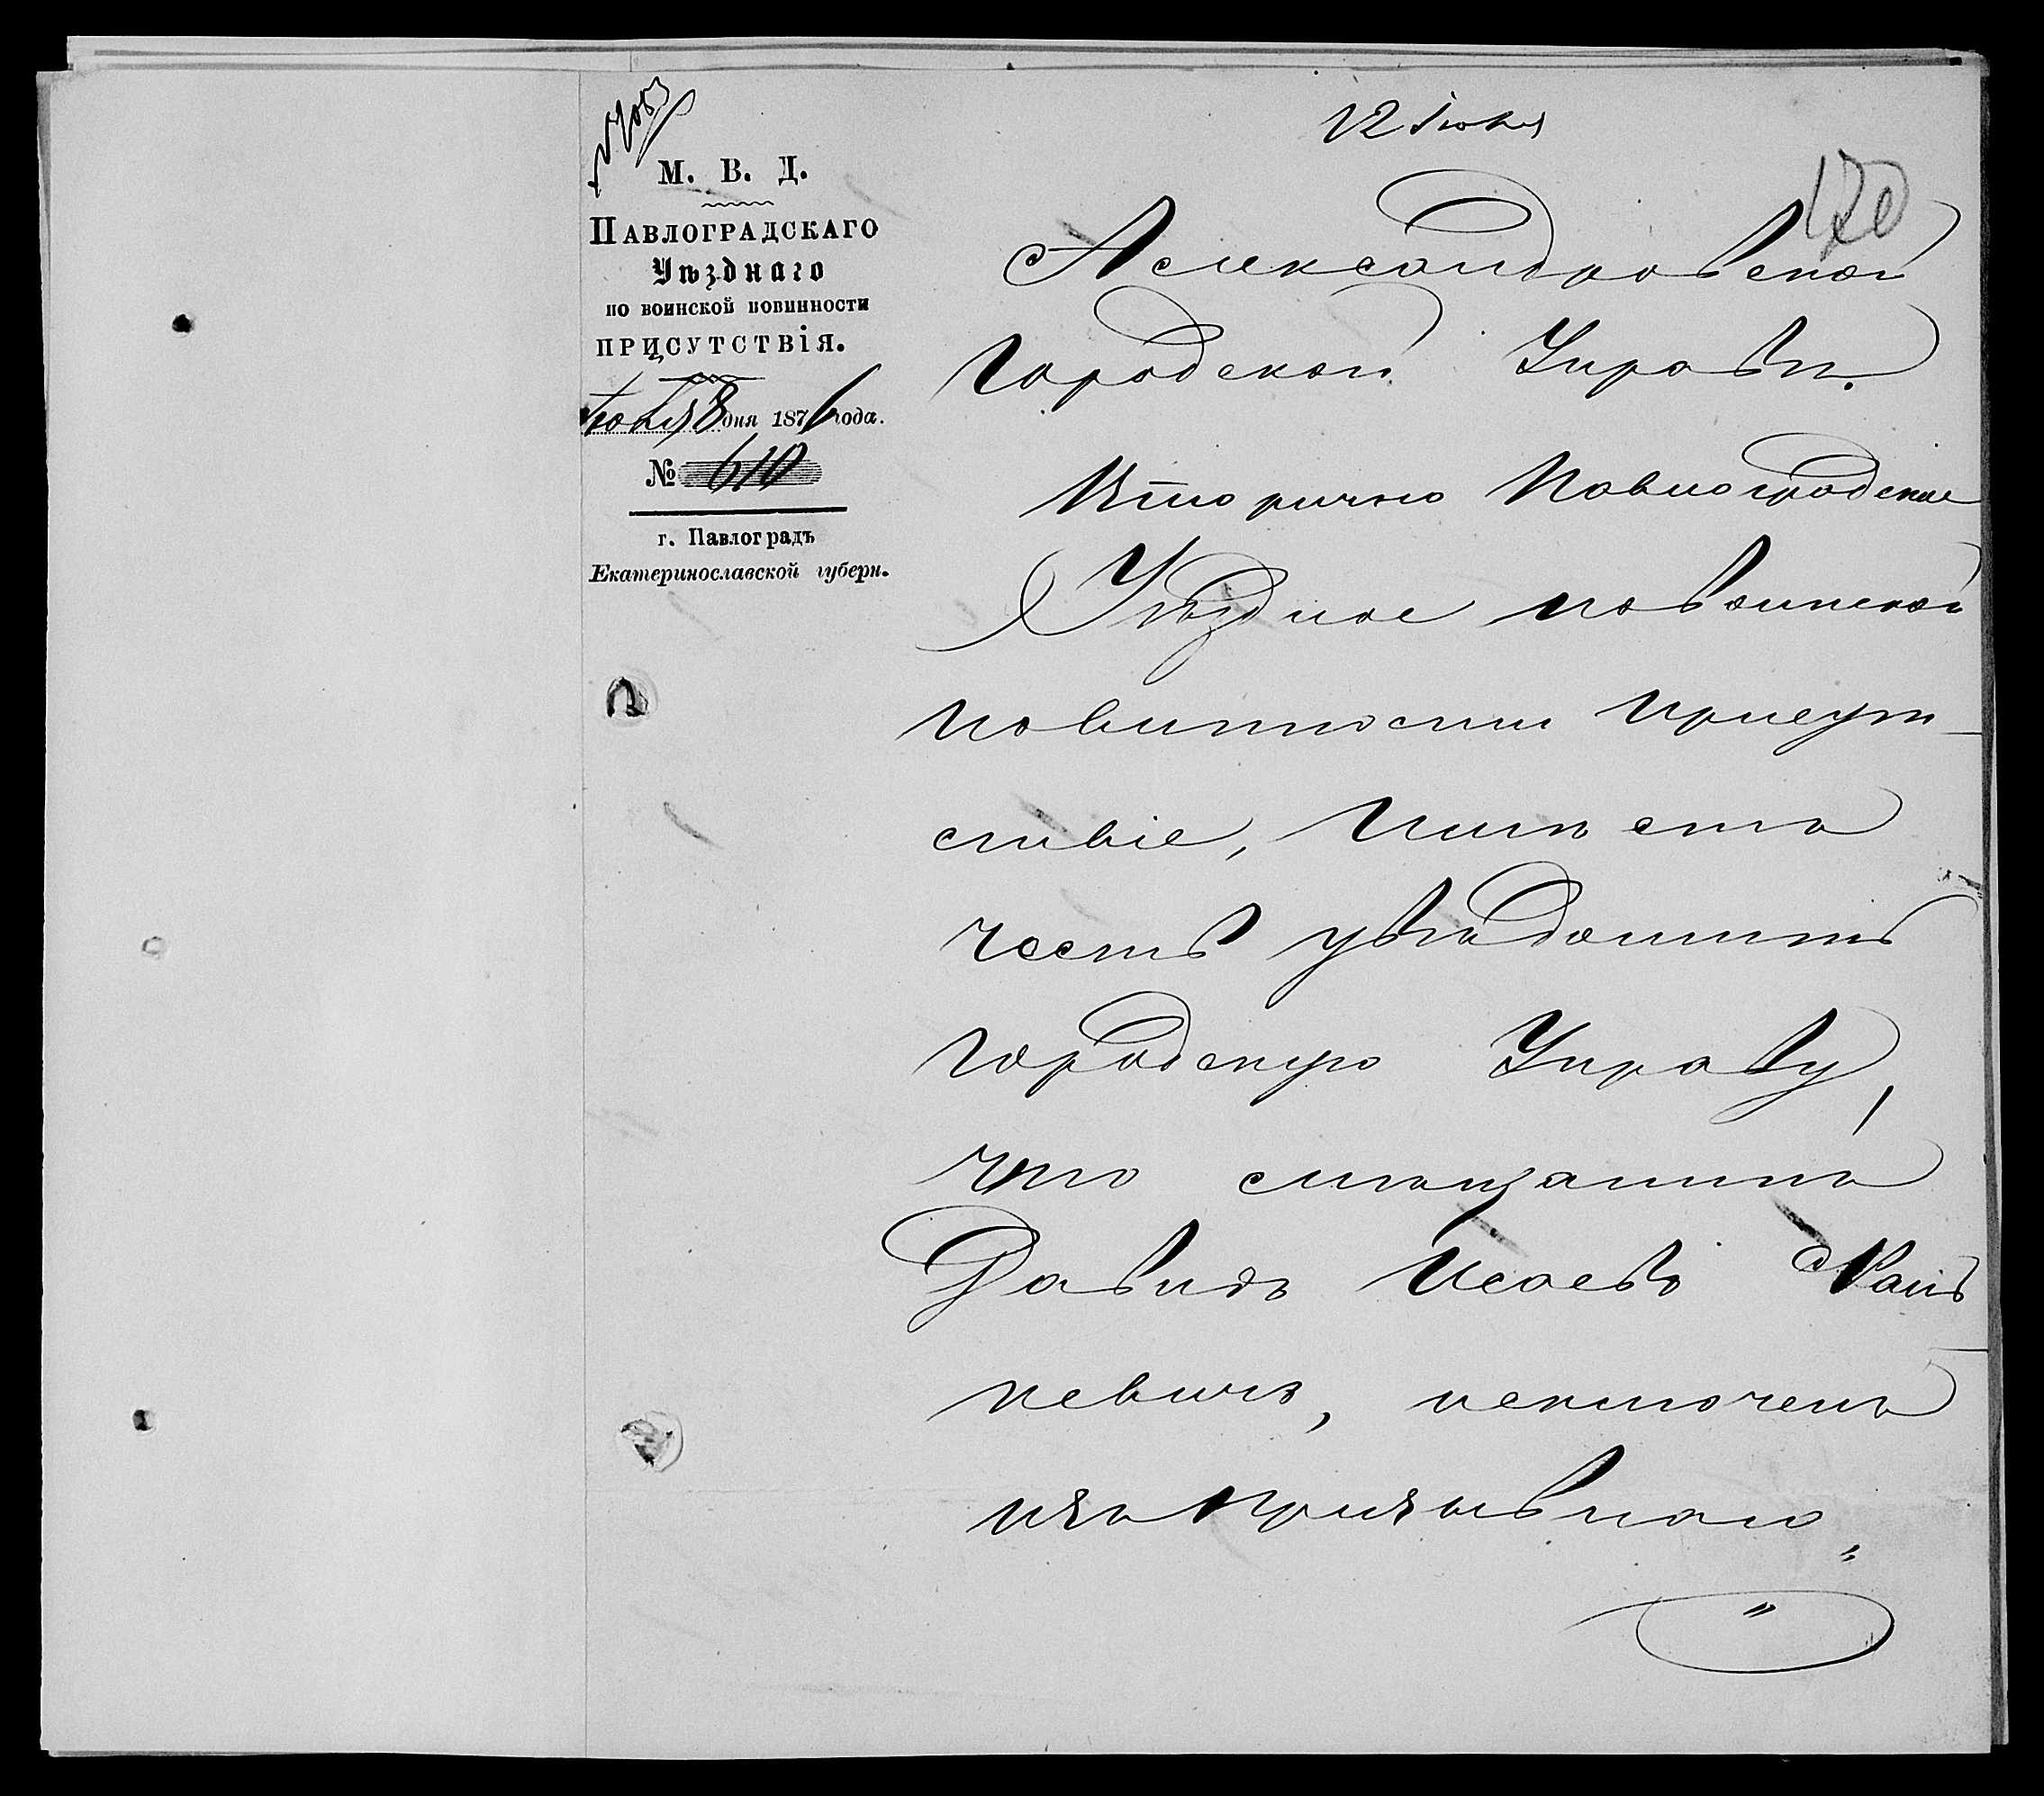 12 Іюня
170
М. В. Д.
Павлоградскаго
Уѣзднаго
по воинской повинности
присутствія.
Іюня 8 дня 1876 года.
№ 610
г. Павлоградъ
Екатеринославской губерн.
Александровской
Городской Управѣ.
Вторично Павлоградское
Уѣздное по воинской
повинности присут-
ствіе, имѣетъ
честь увѣдомить
Городскую Управу,
что мѣщанинъ
Давидъ Исаевъ
невичъ, исключенъ
изъ призывнаго